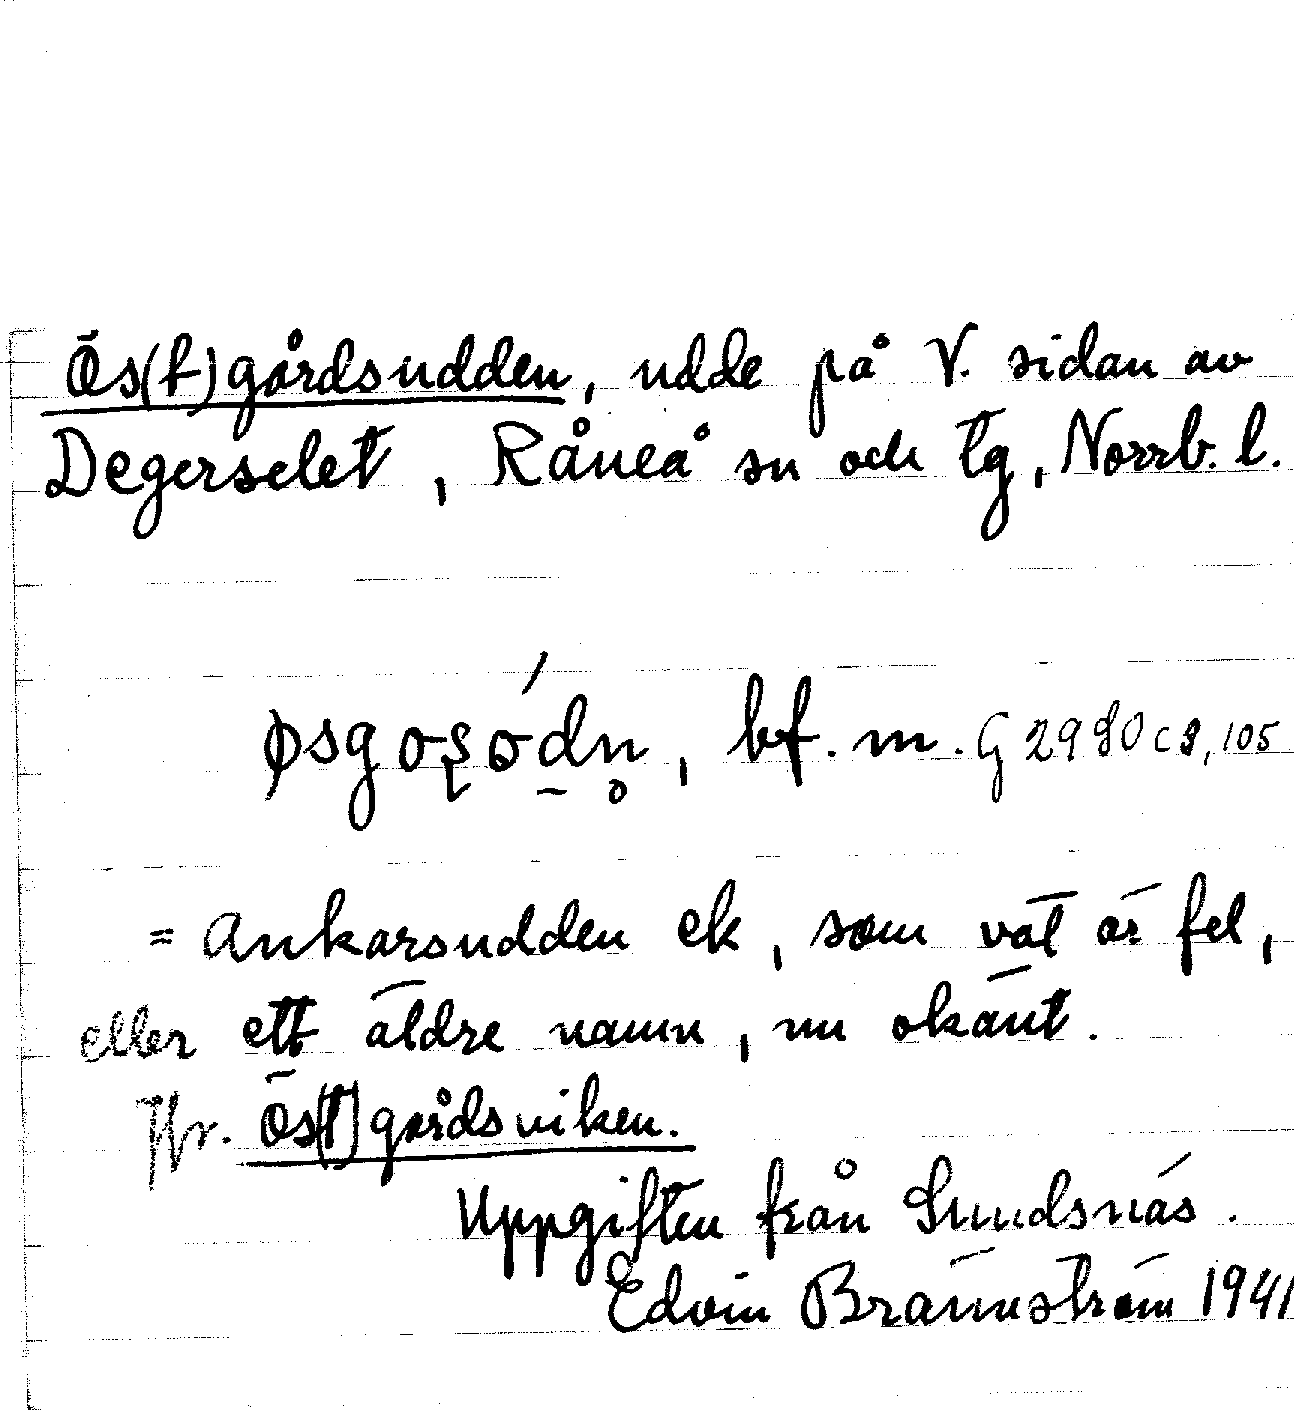 Ös(t)gårdsudden, udde på V. sidan av
Degerselet, Råneå sn och tg, Norrb. l.
bf. m. G 2980 c 8, 105
= Ankarsudden ek, som väl är fel,
eller ett äldre namn, nu okänt.
Jfr. Ös(t)gårdsviken.
Uppgiften från Sundsnäs.
Edvin Brännström 1941